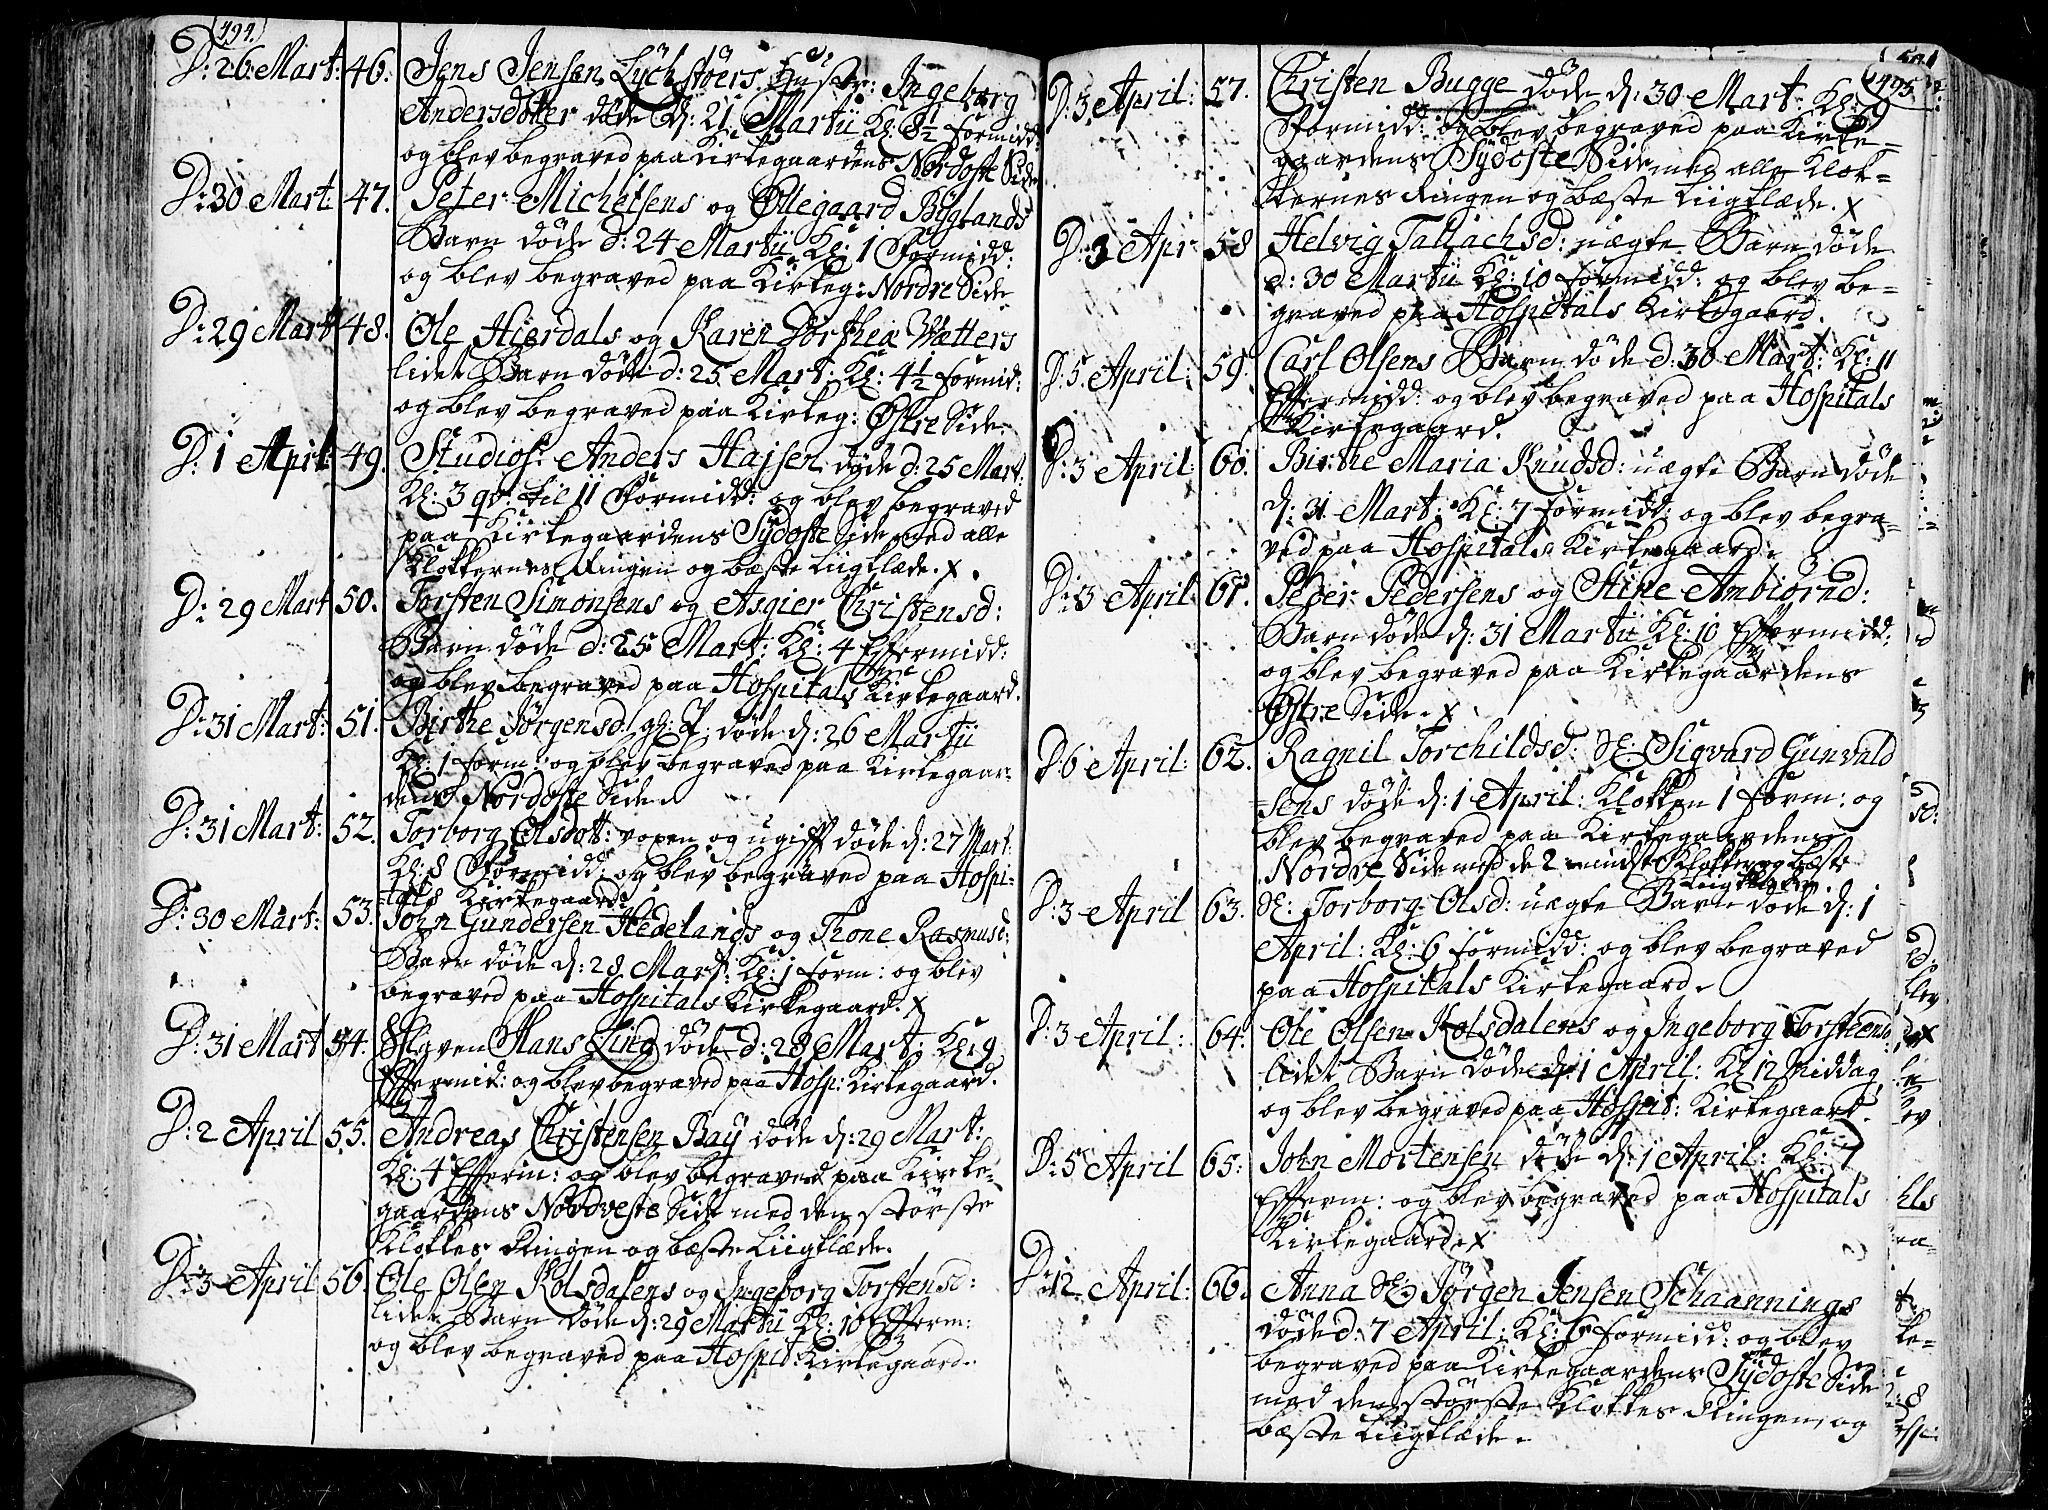 494.
D: 26 Mart: 46. Jens Jensen Lÿchstöers Hustr: Ingeborg
Andersdotter döde d: 21 Martii Kl: 8½ formidd:
og blev begraved paa Kirkegaardens Nordoste Side
D: 30 Mart: 47. Peter Michelsens og Ollegaard Bÿglands
Barn döde d: 24 Martii Kl: 1 Formidd:
og blev begraved paa Kirkeg: Nordre Side
D: 29 Mart 48. Ole Hierdals og Karen Dorthea Wätters
lidet Barn döde d: 25 Mart: Kl: 4½ formid:
og blev begraved paa Kirkeg: Östre Side
D: 1 April: 49. Studios: Anders Hajsen döde d: 25 Mart:
Kl: 3 qv: til 11 Formidd: og blev begraved
paa Kirkegaardens Sÿdoste Side med alle
Klokkernes Ringen og bæste Liigklæde. x.
D: 29 Mart 50. Torsten Simonsens og Asgier Christensd:
Barn döde d: 25 Mart: Kl: 4 Eftermidd:
og blev begraved paa Hospitals Kirkegaard.
D: 31 Mart: 51. Birthe Jörgensd: döde d: 26 Martii
Kl: 1 form: og blev begraved paa Kirkegaar-
dens Nordoste Side.
D: 31 Mart: 52. Torborg Olsdott: voxen og ugift döde d: 27 Mart:
Kl: 8 Formidd: og blev begraved paa Hospi-
tals Kirkegaard.
D: 30 Mart: 53. John Gundersen Hedelands og Thone Rasmusd:
Barn döde d: 28 Mart: Kl: 1 form: og blev
begraved paa Hospitals Kirkegaard. x
D: 31 Mart 54. Slaven Hans Lind döde d: 28 Mart: Kl: 9
Eftermid: og blev begraved paa Hosp: Kirkegaard.
D: 2 April 55. Andreas Christensen Baÿ döde d: 29 Mart:
Kl: 4 Efterm: og blev begraved paa Kirke-
gaardens Nordveste Side med den störste
Klokkes Ringen og bæste Liigklæde.
D: 3 April 56. Ole Olsen Kolsdalens og Ingeborg Torstensd:
lidet Barn döde d: 29 Martii Kl: 10 Efterm:
og blev begraved paa Hospit: Kirkegaard.
495.
D: 3 April: 57. Christen Bugge döde d: 30 Mart: Kl: 9
Formidd: og blev begraved paa Kirke-
gaardens Sÿdoste Side med alle Klok-
kernes Ringen og bæste Liigklæde. x
D: 3 Apr 58 Helvig Tallachsd: uægte Barn döde
d: 30 Martii Kl: 10 formidd: og blev be-
graved paa Hospitals Kirkegaard.
D: 5 April: 59. Carl Olsens Barn döde d: 30 Mart: Kl: 11
Eftermidd: og blev begraved paa Hospitals
Kirkegaard.
D: 3 April: 60. Birthe Maria Knudsd: uægte Barn döde
d: 31 Mart: Kl: 7 formidd: og blev begra-
ved paa Hospitals Kirkegaard.
D: 3 April: 61. Peder Pedersens og Stine Ambiörnd:
Barn döde d: 31 Martii Kl: 10 Eftermidd:
og blev begraved paa Kirkegaardens
Östre Side. x
D 6 April: 62. Ragnil Torchildsd: Sigvard Gunvald
sens döde d: 1 April: Klokken 1 form: og
blev begraved paa Kirkegaardens
Nordre Side med de 2 mindste Klokker og bæste
Liigklæde.
D: 3 April 63. Torborg Olsd: uægte Barn döde d: 1
April: Kl: 6 formidd: og blev begraved
paa Hospitals Kirkegaard.
D: 3 April: 64. Ole Olsen Kolsdalens og Ingeborg Torstensd:
lidet Barn döde d: 1 April: Kl 12 Middag
og blev begraved paa Hospit: Kirkegaard.
D: 5 April 65: John Mortensen döde d: 1 April: Kl: 7
Efterm: og blev begraved paa Hospitals
Kirkegaard. x
D: 12 April: 66. Anna Jörgen Jensen Schaannings
döde d: 7 April: Kl: 6 formidd: og blev
begraved paa Kirkegaardens Sÿdoste Side
med den störste Klokkes Ringen, og
bæste Liigklæde.